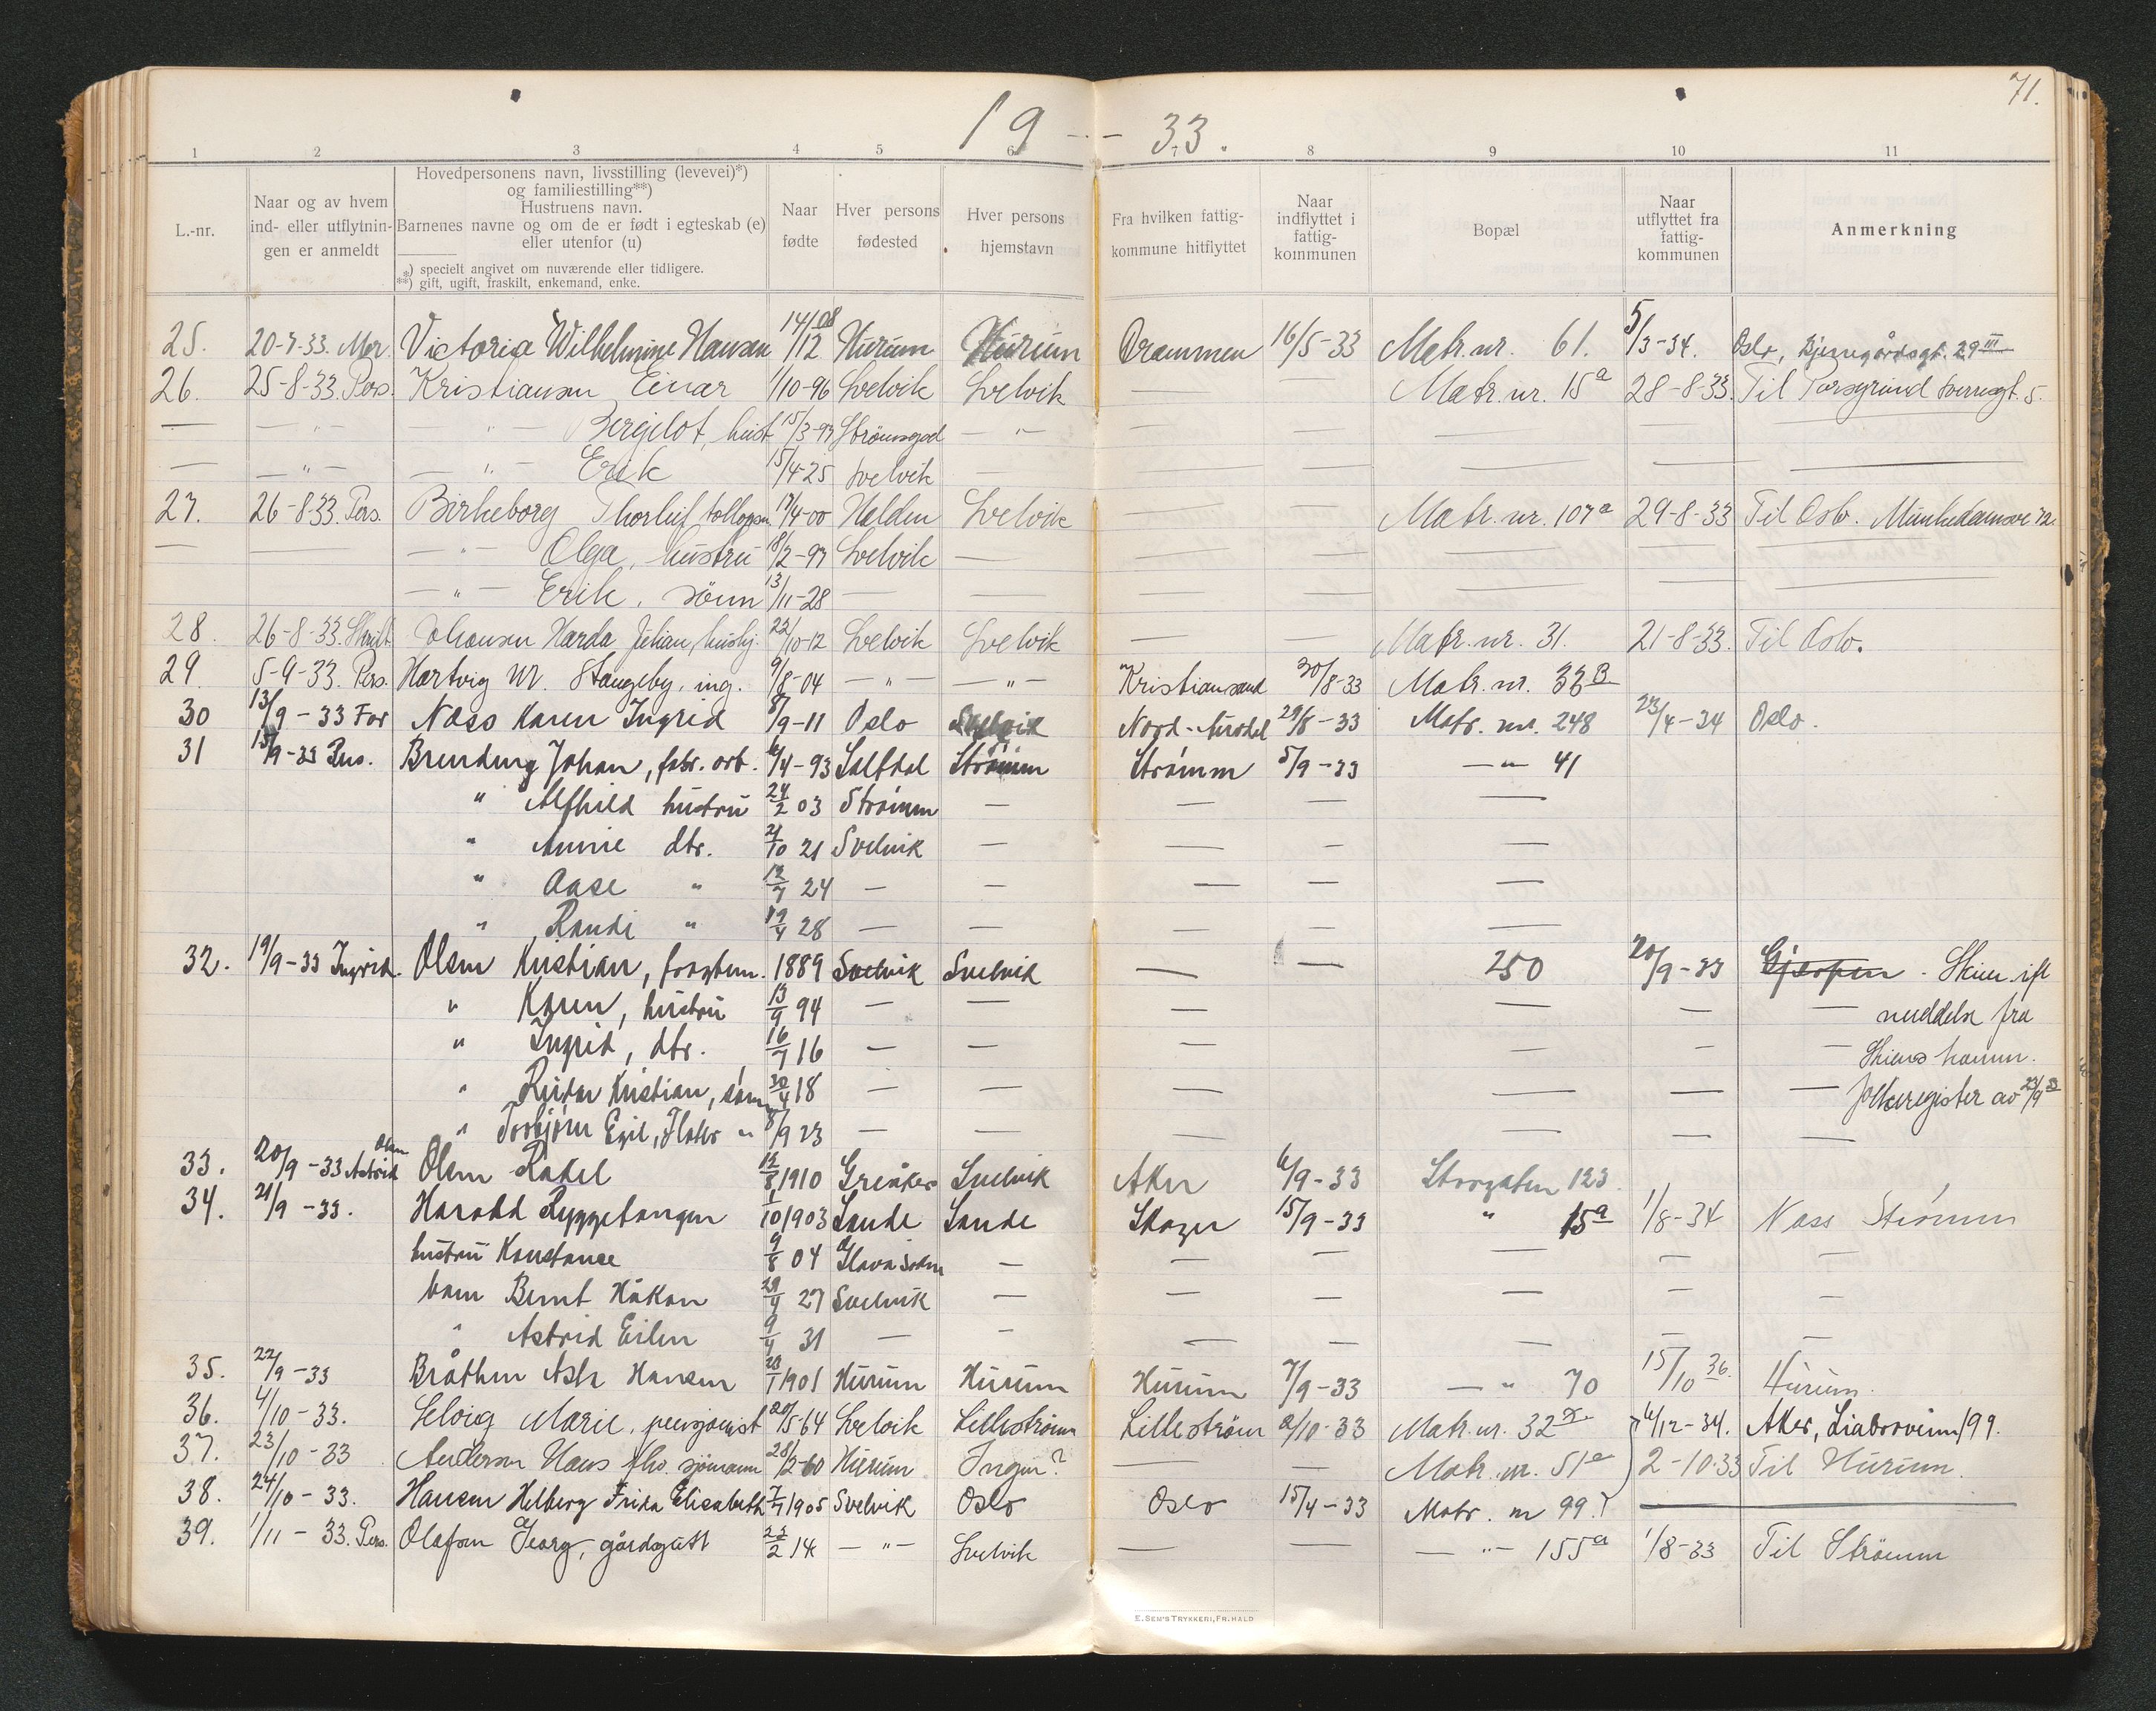 71.
19 — 33.
1 2 3 4 5 6 7 8 9 10 11
L.-nr.
Naar og av hvem
ind- eller utflytnin-
gen er anmeldt
Hovedpersonens navn, livsstilling (levevei)*)
og familiestilling**)
Hustruens navn.
Barnenes navne og om de er født i egteskab (e)
eller utenfor (u)
*) specielt angivet om nuværende eller tidligere.
**) gift, ugift, fraskilt, enkemand, enke.
Naar
fødte
Hver persons
fødested
Hver persons
hjemstavn
Fra hvilken fattig-
kommune hitflyttet
Naar
indflyttet i
fattig-
kommunen
Bopæl
Naar
utflyttet fra
fattig-
kommunen
Anmerkning
25. 20-7-33. Mor. Victoria Wilhelmine Hansen 14/12 08 Hurum Hurum Drammen 16/5-33 Matr. nr. 61. 5/3-34. Oslo, 29 III
26. 25-8-33. Pers. Kristiansen Einar 1/10-96 Svelvik Svelvik — — Matr. nr. 15a 28-8-33. Til Porsgrund Sverresgt. 5.
— — " — — " — Bergljot, hust 15/3-97 Strømsgod — " — — — — — —
— — " — — " — Erik 15/4-25 Svelvik — — — — — —
27. 26-8-33. Pers. Birkeborg Thorleif tollopsm. 17/4-00 Halden Svelvik — — Matr. nr. 107a 29-8-33 Til Oslo. Munkedamsve 72.
— — — " — Olga, hustru 18/2-97 Svelvik — — — — — —
— — — " — Erik, sønn 13/11-28 — — — — — — —
28. 26-8-33. Skrift. Johansen Harda Julian, hushj. 22/10-12 Svelvik Svelvik — Matr. nr. 31. 21-8-33. Til Oslo.
29. 5-9-33. Pers. Hartvig M. Stangeby, ing. 9/8-04 — " — — " — Kristiansand 30/8-33 Matr. nr. 33B
30 13/9-33 Far Næss Karen Ingrid 8/9-11 Oslo Svelvik Nord-Aurdal 29/8-33 Matr. nr. 248 23/4-34 Oslo.
31 15/9-33 Pers. Brendung Johan, fabr. arb. 6/4-93 Saltdal Strømm Strømm 5/9-33 — " — 41
" Alfhild hustru 24/2 03 Strømm — — — —
" Annie dtr. 21/10 21 Svelvik — — — —
" Aase " 12/7 24 — — — — —
" Randi " 19/4 28 — — — — —
32. 19/9-33 Ingrid. Olsen Kristian, fragtem. 1889 Svelvik Svelvik — — 250 20/9-33 Gjerpen - Skien ifl
" Karen, hustru 13/9 94 — — — — — — meddelse fra
" Ingrid, dtr. 16/7 16 — — — — — — Skiens komm.
" Reidar Kristian, sønn 30/4 18 — — — — — — folkeregister av 23/9 33
" Torbjørn Egil, " 8/9 23 — — — — — —
33. 20/9-33 Astrid Olsen Olsen Rakel 12/8 1910 Greåker Svelvik Aker 6/9-33 Storgaten 123
34. 21/9-33. Harald Ryggetangen 1/10 1903 Sande Sande Skoger 15/9-33 " 15a 1/8-34 Næss Strømm
hustru Konstance 9/8 04 — — — — — —
barn Bernt Håkon 29/4 27 Svelvik — — — — — —
" Astrid Eilen 9/4 31 — — — — — — —
35. 22/9-33 Bråthen Hansen 20/1 1901 Hurum Hurum Hurum 7/9-33 — " 70 15/10 36. Hurum.
36. 4/10-33. Selvig Marie, pensjonist 20/5-64 Svelvik Lillestrøm Lillestrøm 2/10-33 Matr. nr. 32 6/12-34. Aker, Liabroveien 199.
37. 23/10-33 Andersen Hans fhv. sjømann 28/2-60 Hurum Ingen? — — Matr. nr. 51a 2-10-33 Til Hurum.
38. 24/10-33. Hansen Helberg Frida Elisabeth 7/7 1905 Svelvik Oslo Oslo 15/4-33 Matr. nr 99. —
39. 1/11-33. Pers. Olafsen Georg, gårdsgutt 23/2 14 — " — Svelvik — — — " — 155a 1/8-33 Til Strømm
E. SEM'S TRYKKERI, FR. HALD